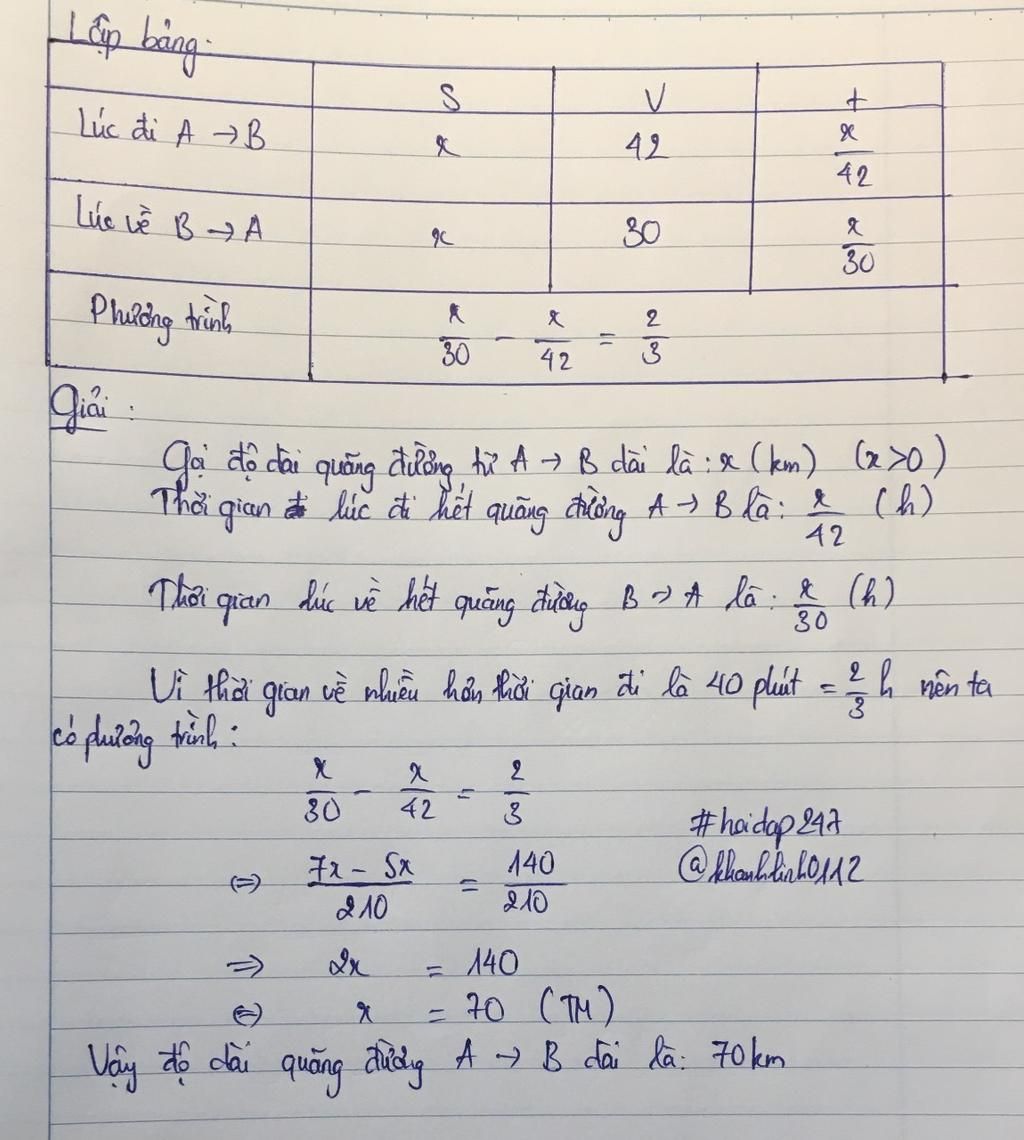 Lập bảng.
S V t
Lúc đi A → B x 42 x/42
Lúc về B → A x 30 x/30
Phương trình x/30 - x/42 = 2/3
Giải :
Gọi độ dài quãng đường từ A → B dài là : x (km) (x>0)
Thời gian lúc đi hết quãng đường A → B là : x/42 (h)
Thời gian lúc về hết quãng đường B → A là : x/30 (h)
Vì thời gian về nhiều hơn thời gian đi là 40 phút = 2/3 h nên ta
có phương trình :
x/30 - x/42 = 2/3
#hoidap247
⇔ (7x - 5x)/210 = 140/210
@khanhlinh0112
⇒ 2x = 140
⇔ x = 70 (TM)
Vậy độ dài quãng đường A → B dài là : 70km